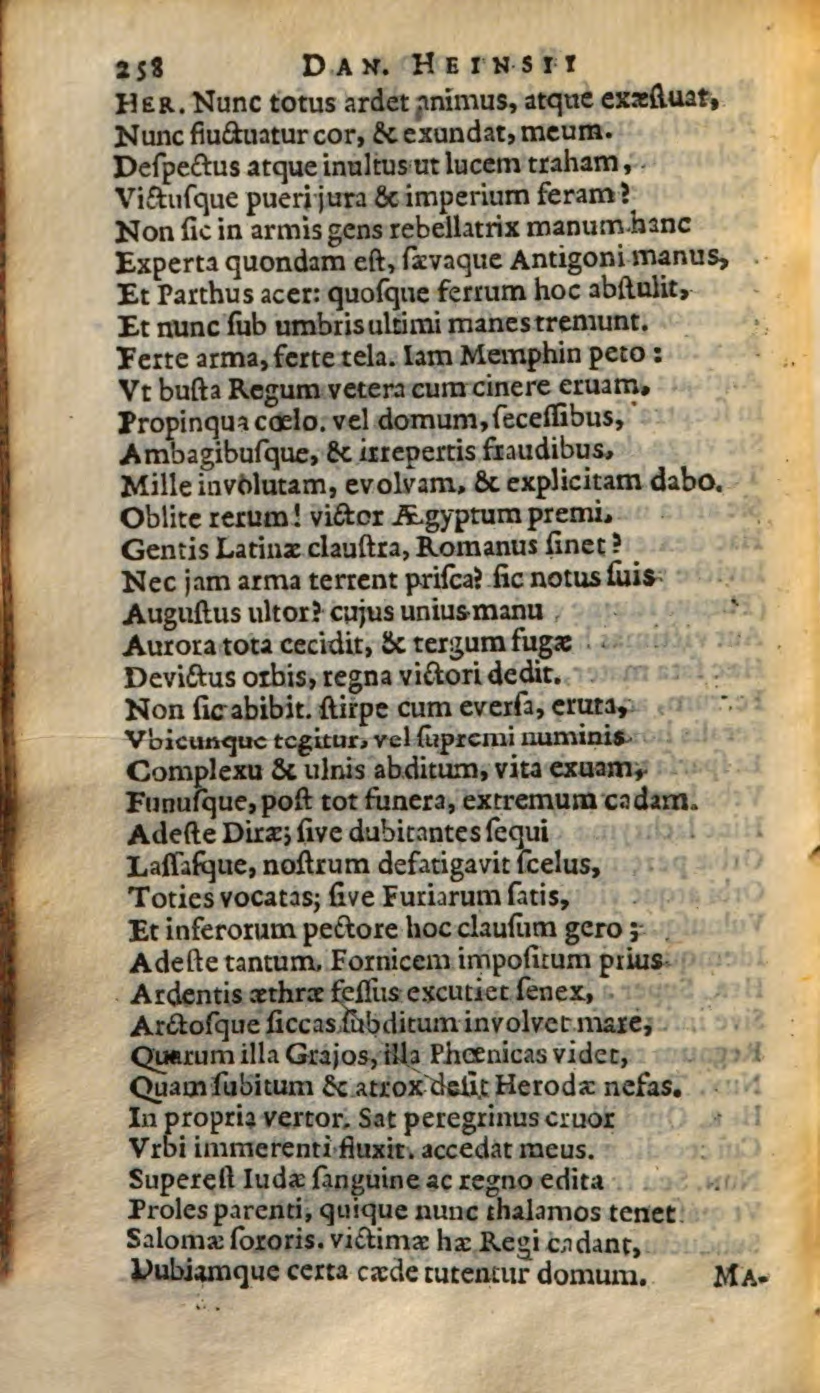 258 DAN. HEINSII
HER. Nunc totus ardet animus, atque exæſtuat,
Nunc fluctuatur cor, & exundat, meum.
Deſpectus atque inultus ut lucem traham,
Victuſque pueri jura & imperium feram?
Non ſic in armis gens rebellatrix manum hanc
Experta quondam eſt, ſævaque Antigoni manus,
Et Parthus acer: quoſque ferrum hoc abſtulit,
Et nunc ſub umbris ultimi manes tremunt.
Ferte arma, ferte tela. Iam Memphin peto:
Vt buſta Regum vetera cum cinere eruam,
Propinqua cœlo. vel domum, ſeceſſibus,
Ambagibuſque, & irrepertis fraudibus,
Mille involutam, evolvam, & explicitam dabo.
Oblite rerum! victor Ægyptum premi,
Gentis Latinæ clauſtra, Romanus ſinet?
Nec jam arma terrent priſca? ſic notus ſuis
Auguſtus ultor? cujus unius manu
Aurora tota cecidit, & tergum fugæ
Devictus orbis, regna victori dedit.
Non ſic abibit. ſtirpe cum everſa, eruta,
Vbicunque tegitur, vel ſupremi numinis
Complexu & ulnis abditum, vita exuam,
Funuſque, poſt tot funera, extremum cadam.
Adeſte Diræ; ſive dubitantes ſequi
Laſſaſque, noſtrum defatigavit ſcelus,
Toties vocatas; ſive Furiarum ſatis,
Et inferorum pectore hoc clauſum gero;
Adeſte tantum. Fornicem impoſitum prius
Ardentis æthræ feſſus excutiet ſenex,
Arctoſque ſiccas ſubditum involvet mare,
Quarum illa Grajos, illa Phœnicas videt,
Quam ſubitum & atrox deſit Herodæ nefas.
In propria vertor. Sat peregrinus cruor
Vrbi immerenti fluxit. accedat meus.
Supereſt Iudæ ſanguine ac regno edita
Proles parenti, quique nunc thalamos tenet
Salomæ ſororis. victimæ hæ Regi cadant,
Dubiamque certa cæde tutentur domum. MA-